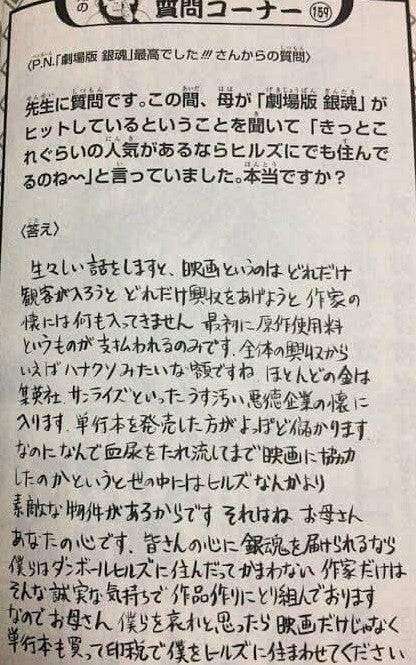 の
質問コーナー 159
〈P.N.「劇場版 銀魂」最高でした!!! さんからの質問〉
先生に質問です。この間、母が「劇場版 銀魂」が
ヒットしているということを聞いて「きっとこ
れぐらいの人気があるならヒルズにでも住んで
るのね〜〜」と言っていました。本当ですか？
〈答え〉
生々しい話をしますと、映画というのは どれだけ
観客が入ろうと どれだけ興収をあげようと 作家の
懐には何も入ってきません 最初に原作使用料
というものが支払われるのみです. 全体の興収から
いえばハナクソみたいな額ですね. ほとんどの金は
集英社 サンライズといったうす汚い悪徳企業の懐に
入ります. 単行本を発売した方がよっぽど儲かります.
なのになんで血尿をたれ流してまで映画に協力
したのかというと世の中にはヒルズなんかより
素敵な物件があるからです それはね お母さん
あなたの心です、皆さんの心に 銀魂を届けられるなら
僕らはダンボールヒルズに住んだってかまわない 作家だけは
そんな誠実な気持ちで 作品作りにとり組んでおります
なのでお母さん 僕らを哀れと思ったら 映画だけじゃなく
単行本も買って印税で僕をヒルズに住まわせてください